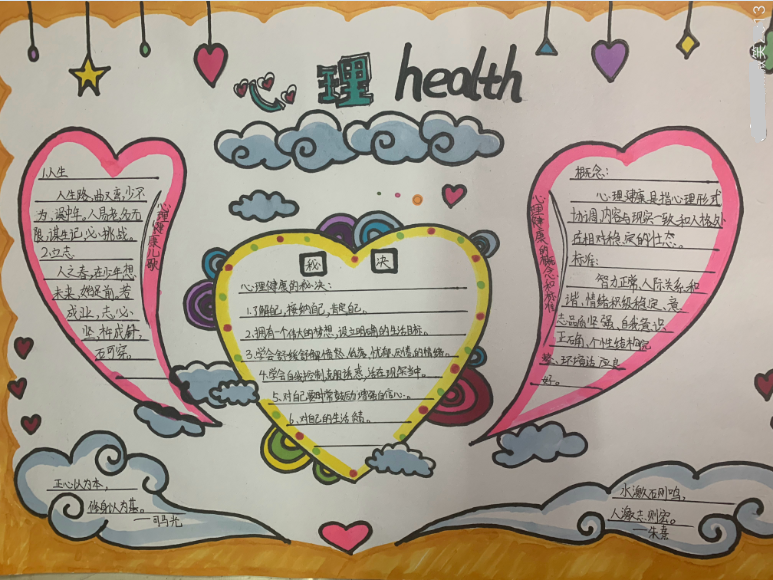 心理 health
心理健康儿歌
1.人生
人生路,曲又弯,少不
为,误中年,人易老,
限,谋生记,必挑战。
2.立志
人之春,在少年,想
未来,
成业,志,必
坚,杵成针,
秘 决
心理健康的秘决:
1.了解自己,接纳自己,肯定自己。
2.拥有一个伟大的梦想,设立明确的生活目标。
3.学会舒缓
4.学会自我控制,克服诱惑,活在现实中。
5.对自己要时常鼓励,增强自信心。
6.对自己的生活
心理健康的概念和标准
概念:
心理健康是指心理形式
协调,内容与现实一致和人格处
在相对稳定的状态。
标准:
智力正常,人际关系和
谐,情绪积极稳定,意
志品质坚强,自我意识
正确,个性结构完
整、环境适应良
好。
正心以为本,
修身以为基。
——司马光
水激石则鸣,
人激志则宏。
——朱熹